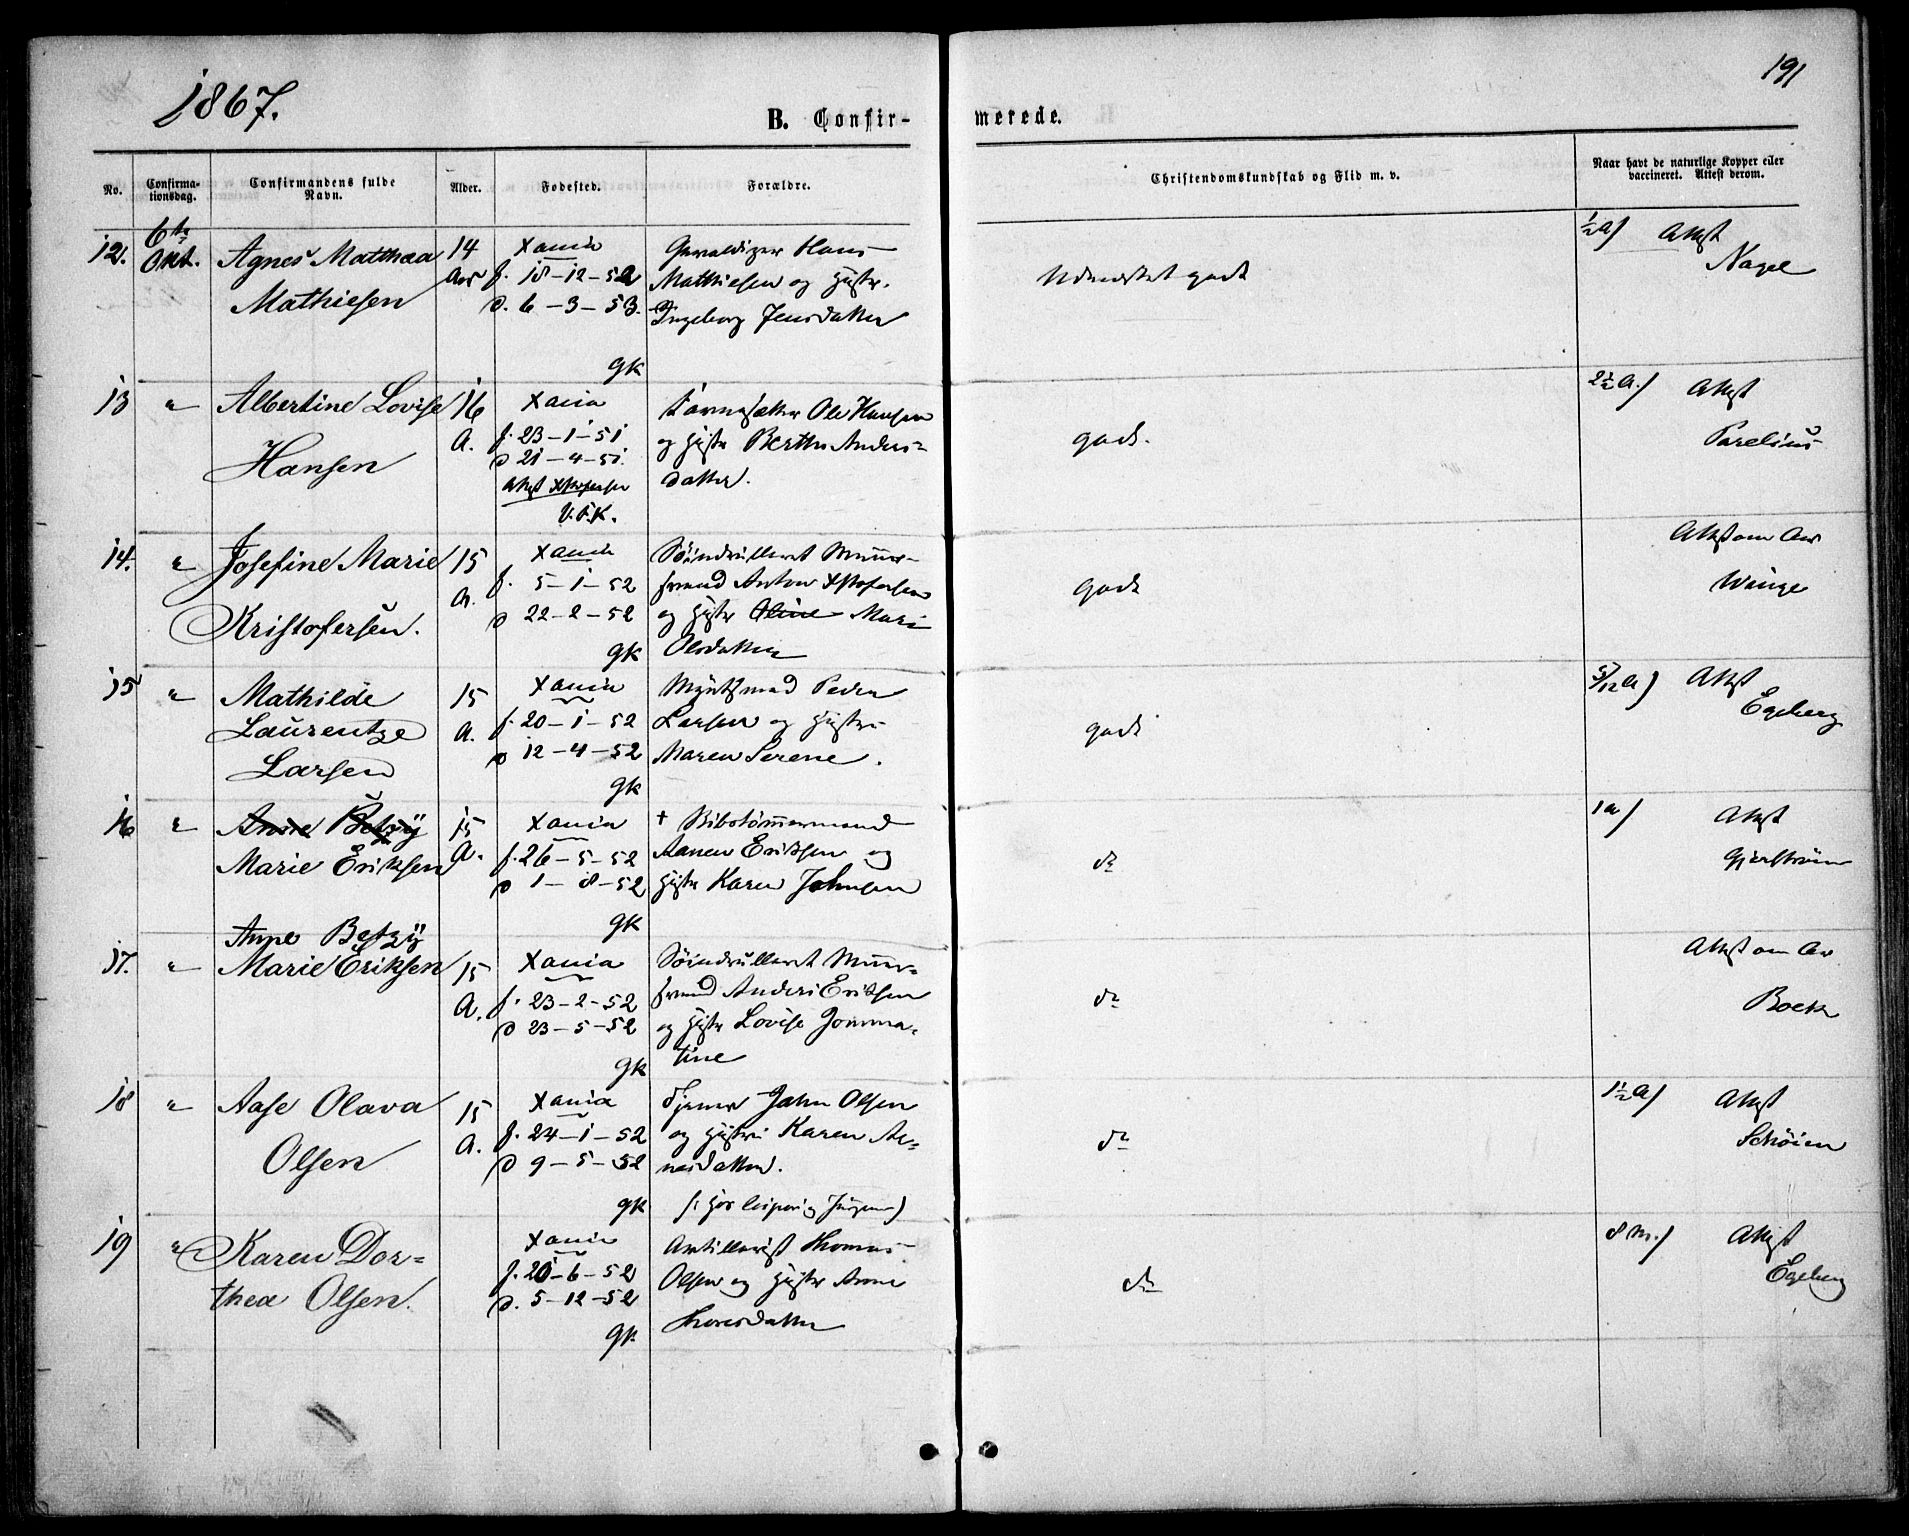 1867.
191
B. Confir-
merede.
No.
Confirma-
tionsdag.
Confirmandens fulde
Navn.
Alder.
Fødested.
Forældre.
Christendomskundskab og Flid m. v.
Naar havt de naturlige Kopper eller
vaccineret. Attest derom.
12. 6te Okt. Agnes Matthea
Mathiesen
14
Aar
Xania
f. 18-12-52
d. 6-3-53.
gk
Hans
Mathiesen og Hustr.
Ingeborg Jensdatter
Udmærket godt
1/2 A) Attest
Nagel
13 " Albertine Lovise
Hansen
16
A.
Xania
f. 23-1-51
d 21-4-51.
Attest Xstofersen
V.F.K.
Ole Hansen
og Hustr Berthe Anders-
datter.
godt.
2 1/2 A.) Attest
Parelius
14. " Josefine Marie
Kristofersen.
15
A.
Xania
f. 5-1-52
d 22-2-52
gk
Søindrulleret Muur-
svend Anton Xstofersen
og Hustr Oline Mari
Olsdatter
godt
Attest om Aar
Winge
15 " Mathilde
Laurentze
Larsen
15
A.
Xania
f. 20-1-52
d 12-4-52
gk
Peder
Larsen og Hustru
Maren Serene.
godt
5/12 A) Attest
Egeberg
16 " Anne Betzy
Marie Eriksen
15
A.
Xania
f. 26-5-52
d 1-8-52
gk
+ Ribstømmermand
Eriksen og
Hustr Karen Johnsen
do
1 a) Attest
17. " Anne Betzy
Marie Eriksen
15
A.
Xania
f. 23-2-52
d 23-5-52
gk
Søindrulleret Muur-
svend Anders Eriksen
og Hustr Lovise Jomma-
tine
do
Attest om Aar
Boek
18 " Aase Olava
Olsen
15
A.
Xania
f. 24-1-52
d 9-5-52
gk
Tjener John Olsen
og Hustru Karen Ar-
nesdatter.
do
1 1/2 A) Attest
Schøien
19 " Karen Dor-
thea Olsen.
Xania
f. 20-6-52
d. 5-12-52
gk.
Artillerist Thomas
Olsen og Hustr Anne
Thoresdatter
do
8 M.) Attest
Egeberg